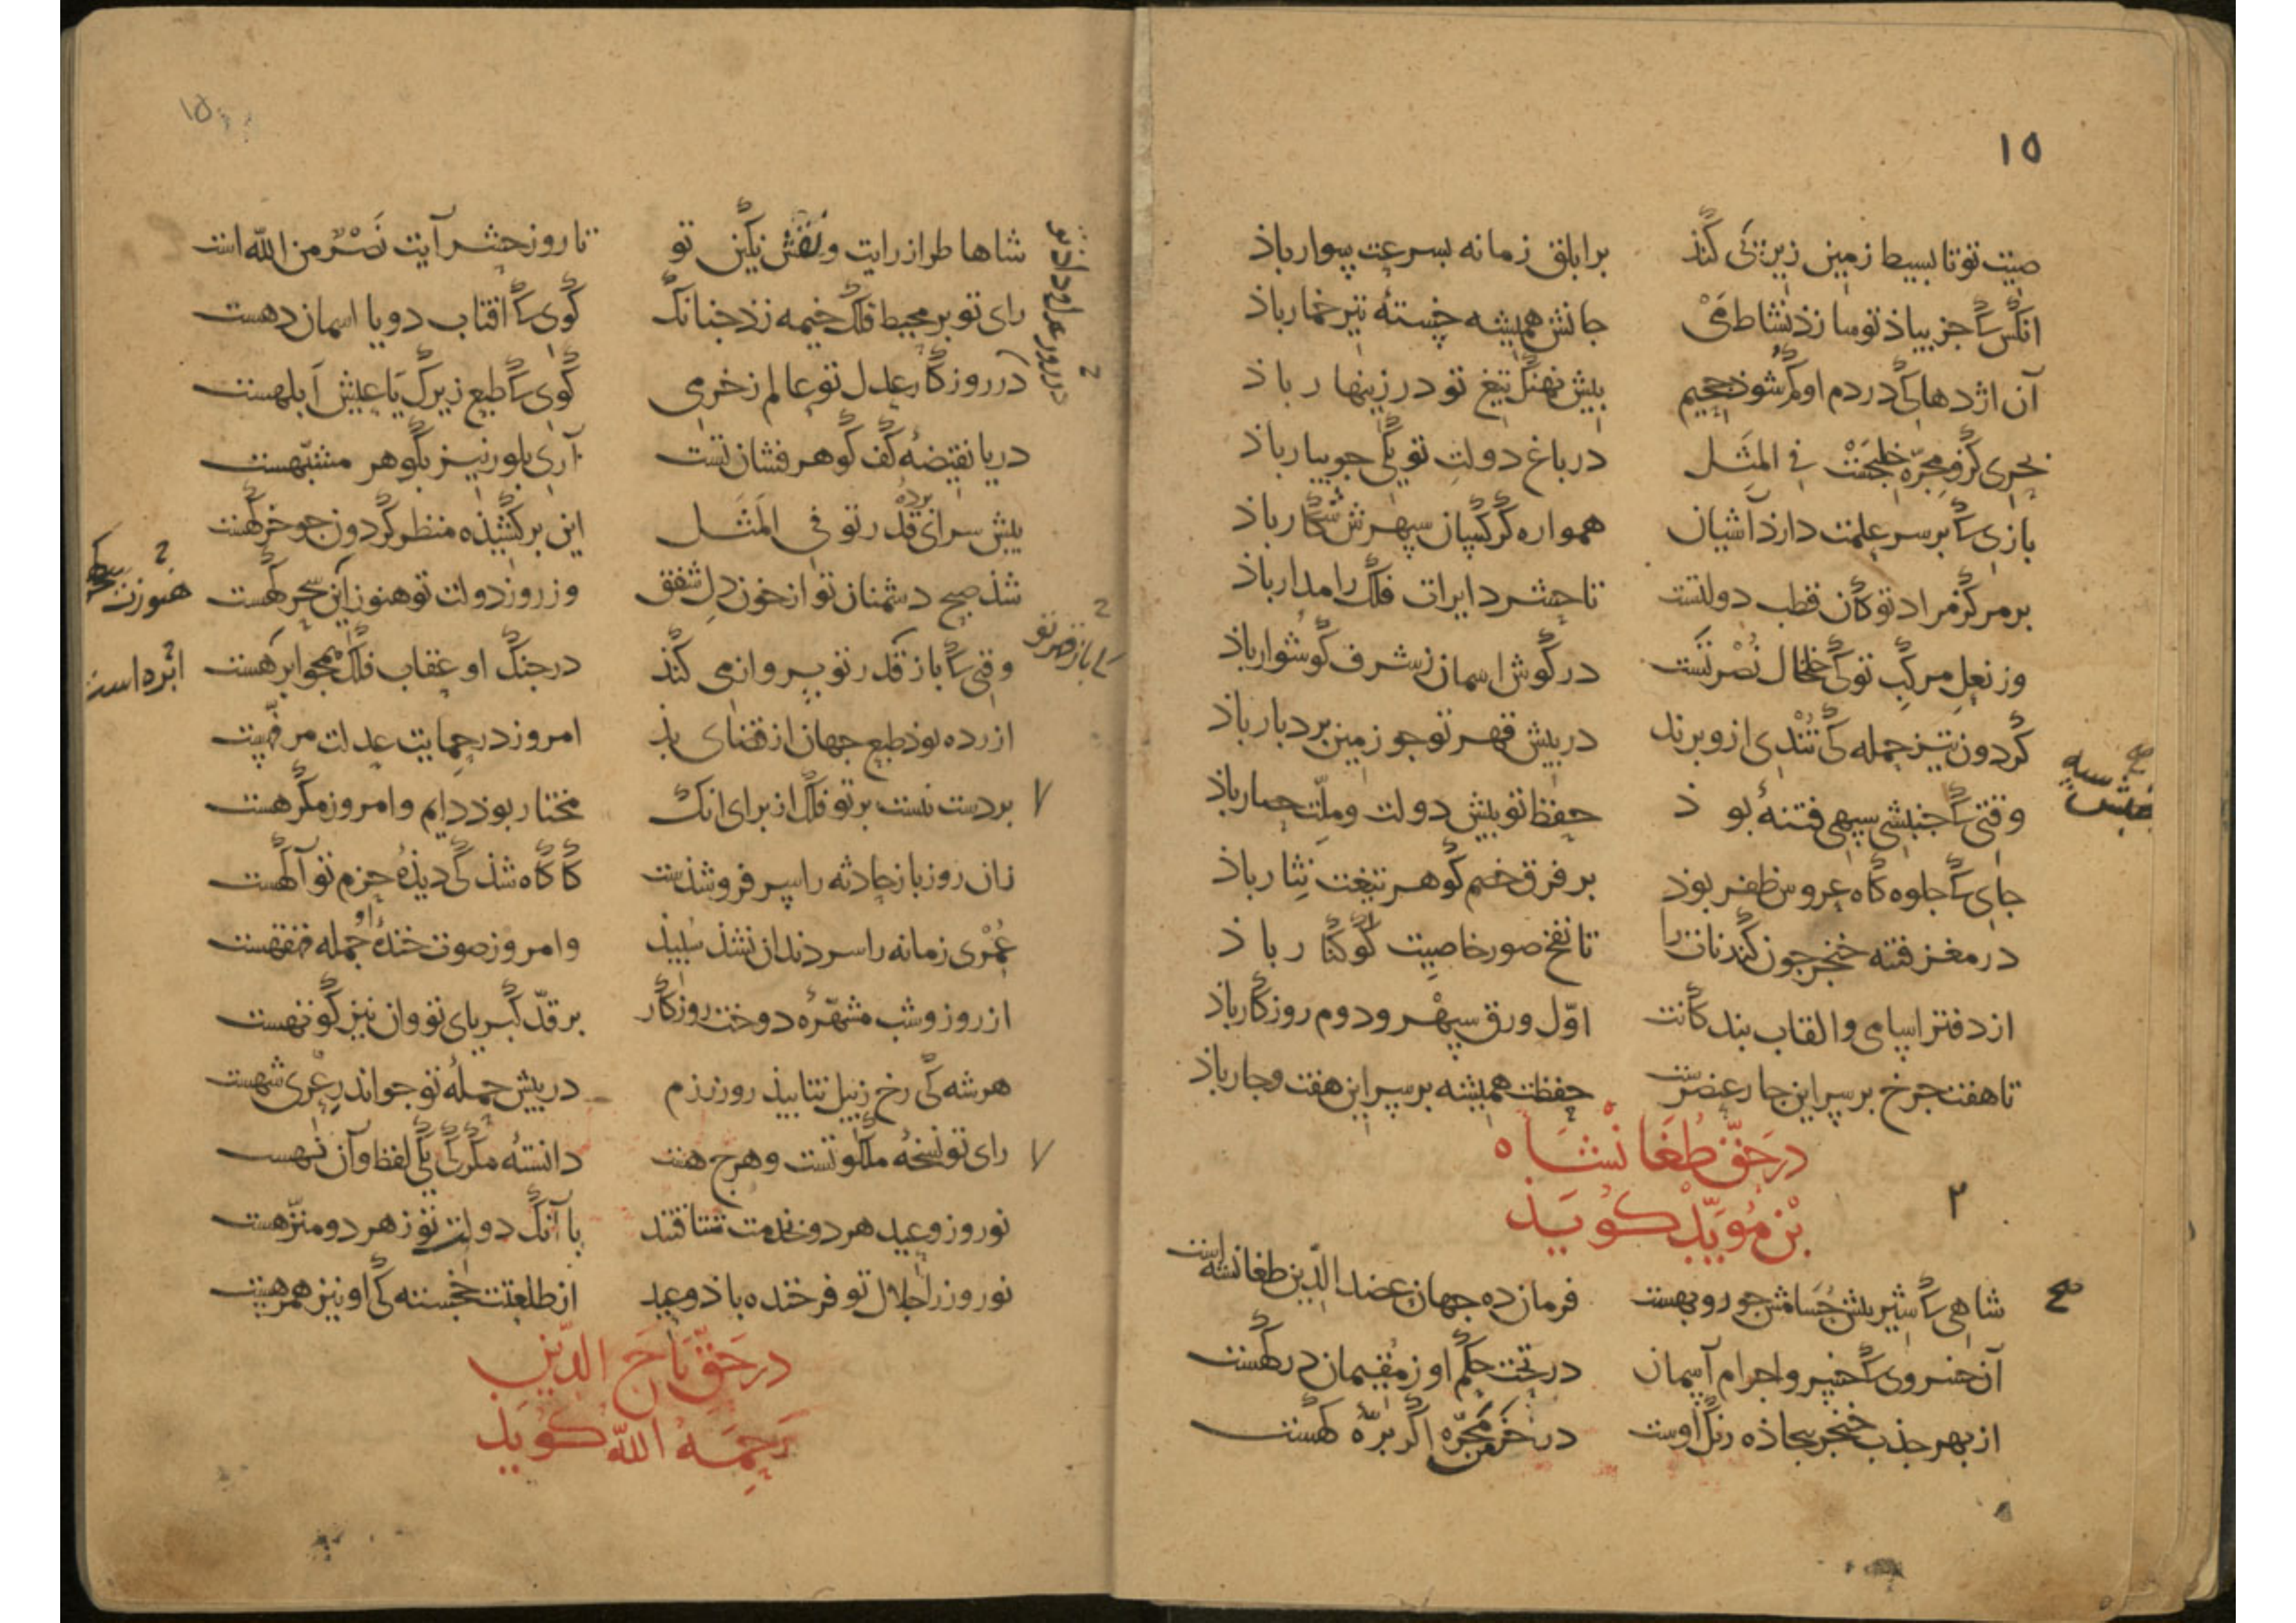 ۱۵
صیت تو تا بسیط زمین زیر پی کند برابلق زمانه بسرعت سوار باذ
انکس کی جز بیاذ تو سازذ نشاط می جانش همیشه خستهٔ تیر خمار باذ
آن اژدها کی در دم او کم شوذ جحیم بیش نهنک تیغ تو در زینهار باذ
بحری کزو مجرّه خلیجست فی المثل در باغ دولت تو یکی جویبار باذ
بازی کی بر سر علمت دارذ آشیان همواره کرکسان سپهرش شکار باذ
بر مرکز مراد تو کان قطب دولتست تا حشر دایرات فلک را مدار باذ
وز نعل مرکب تو کی خلخال نصرتست در کوش اسمان ز شرف کوشوار باذ
کردون تیز حمله کی تندی ازو برند در بیش قهر تو جو زمین بردبار باذ
وقتی کی جنبشی سپهی فتنهٔ بوذ حفظ تو بیش دولت و ملّت حصار باذ
جنبش سپه
جای کی جلوه کاه عروس ظفر بوذ بر فرق خصم کوهر تیغت نثار باذ
در مغز فتنه خنجر جون کندنات را تا نفخ صور خاصیت کوکنار باذ
از دفتر اسامی و القاب بندکانت اوّل ورق سپهر و دوم روزکار باذ
تا هفت جرخ بر سر این جار عنصرست حفظت همیشه بر سر این هفت و جار باذ
در حقّ طغانشاه
بن مؤیّد کوید
۲
شاهی کی شیر بیش حسامش جو روبهست فرمان ده جهان عضد الدین طغانشه است
آن خسروی کی خسرو اجرام آسمان در تخت حکم او ز مقیمان درکهست
از بهر جذب خنجر بیجاذه رنک اوست در خرمن مجرّه اکر برّهٔ کهست
۱۵
شاها طراز رایت و نقش نکین تو تا روز حشر آیت نصر من الله است
رای تو بر محیط فلک خیمه زذ جنانک کوی کی افتاب دو یا اسمان دهست
در روزکار عدل تو عالم ز خرمی کوی کی طبع زیرک یا عیش آبلهست
دریا نقیضهٔ کف کوهر فشان تست آری بلور نیز بکوهر مشبّهست
بیش سرای بردهٔ قدر تو فی المثل این برکشیذه منظر کردون جو خرکهست
شذ صبح دشمنان تو از خون دل شفق وز روز دولت تو هنوز این سحرکهست
وقتی کی باز قدر تو پروانمی کنذ در جنک او عقاب فلک همجو ابرهست
کی باز قدر تو
ابره است
ازرده بوذ طبع جهان از قضای بذ امروز در حمایت عدلت مرفّهست
بر دست تست بر تو فلک از برای انک مختار بوذ دایم و امروز مکرهست
زان روز باز حادثه را سر فرو شذست کاکاه شذ کی دیذهٔ حزم تو آکهست
عمری زمانه را سر دندان نشذ سبیذ وامروز صوت خندهٔ او جمله قهقهست
از روز و شب مشهّرهٔ دوخت روزکار بر قدّ کبریای تو وان نیز کوتهست
هر شه کی رخ ز پیل نتابیذ روز رزم در بیش حملهٔ تو جو اندر عری شهست
رای تو نسخهٔ ملکوتست و هرج هست دانسته مکر کی یکی لفظ و آن نهست
نوروز و عید هر دو بخدمت شتافتند با آنک دولت تو ز هر دو منزّهست
نوروز ز اجلال تو فرخنده باذ و عید از طلعتت خجسته کی او نیز همرهست
در حقّ تاج الدّین
رحمه الله کوید